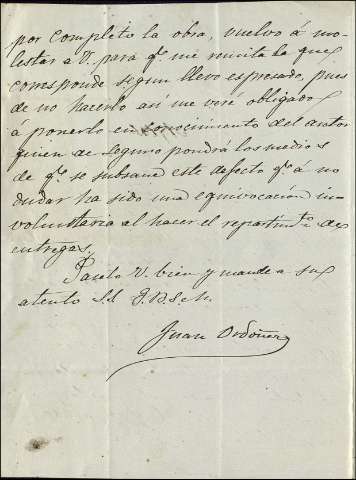 por completo la obra, vuelvo á mo-
lestar a V. para qe. me remita la que
corresponde segun llevo espresado, pues
de no hacerlo asi me veré obligado
á ponerlo en conocimiento del autor
quien de seguro pondrá los medios
de qe. se subsane este defecto qe. á no
dudar ha sido una equivocación in-
voluntaria al hacer el repartimto. de
entregas,
Páselo V. bien y mande a su
atento S.S. Q.B.S.M.
Juan Ordoñez